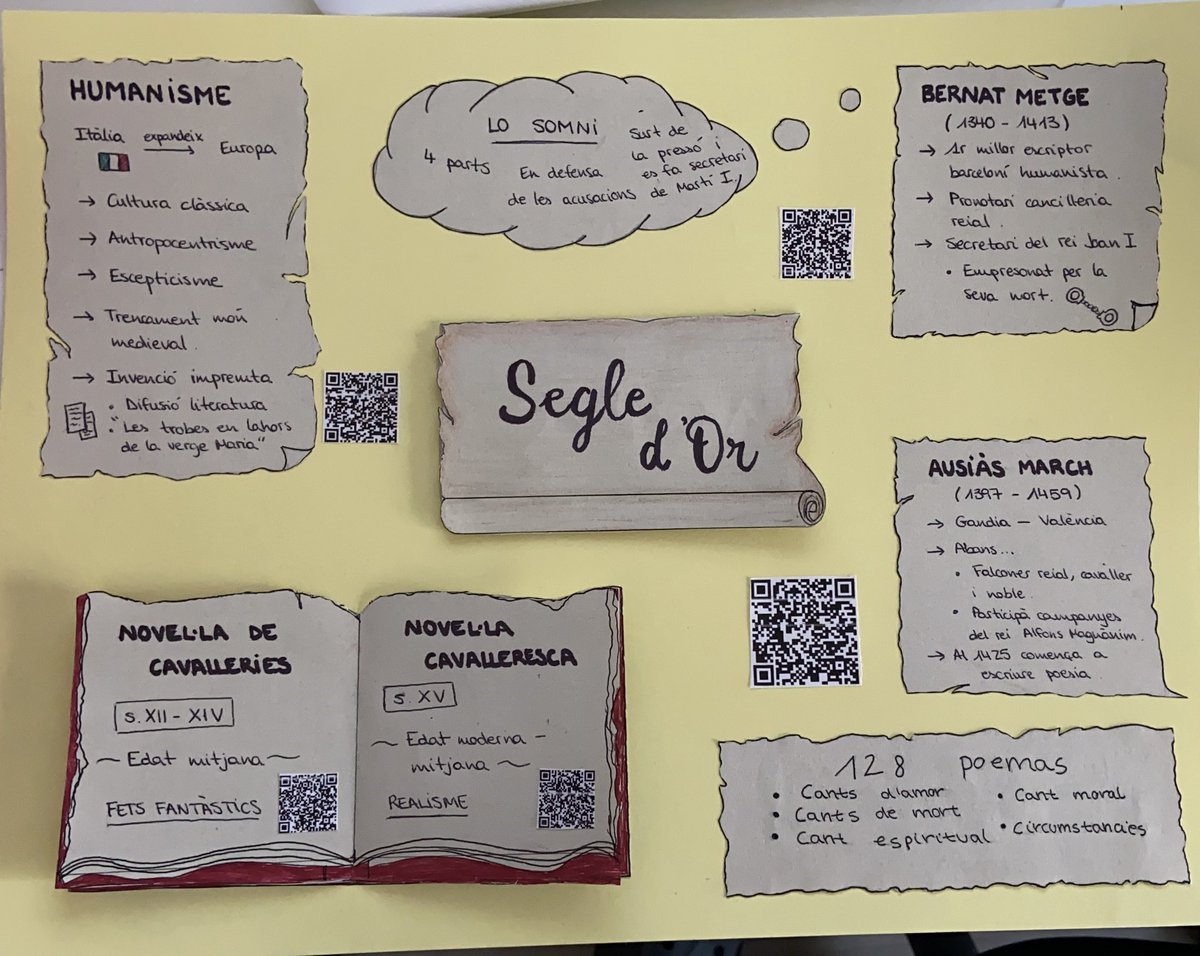 HUMANISME
Itàlia expandeix Europa
→ Cultura clàssica
→ Antropocentrisme
→ Escepticisme
→ Trencament món
medieval.
→ Invenció impremta
• Difusió literatura
• "Les trobes en lahors
de la verge Maria"
LO SOMNI
4 parts
En defensa
de les acusacions
Surt de
la pressó i
es fa secretari
de Martí I.
BERNAT METGE
(1340 - 1413)
→ 1r millor escriptor
barceloní humanista.
→ Pronotari cancilleria
reial.
→ Secretari del rei Joan I
• Empresonat per la
seva mort.
Segle
d'Or
AUSIÀS MARCH
(1397 - 1459)
→ Gandia - València
→ Abans...
• Falconer reial, cavaller
i noble.
• Participà campanyes
del rei Alfons Magnànim.
→ Al 1425 comença a
escriure poesia.
NOVEL·LA DE
CAVALLERIES
S. XII - XIV
~ Edat mitjana ~
FETS FANTÀSTICS
NOVEL·LA
CAVALLERESCA
S. XV
~ Edat moderna -
mitjana ~
REALISME
128 poemas
• Cants d'amor
• Cants de mort
• Cant espiritual
• Cant moral
• Circumstancies